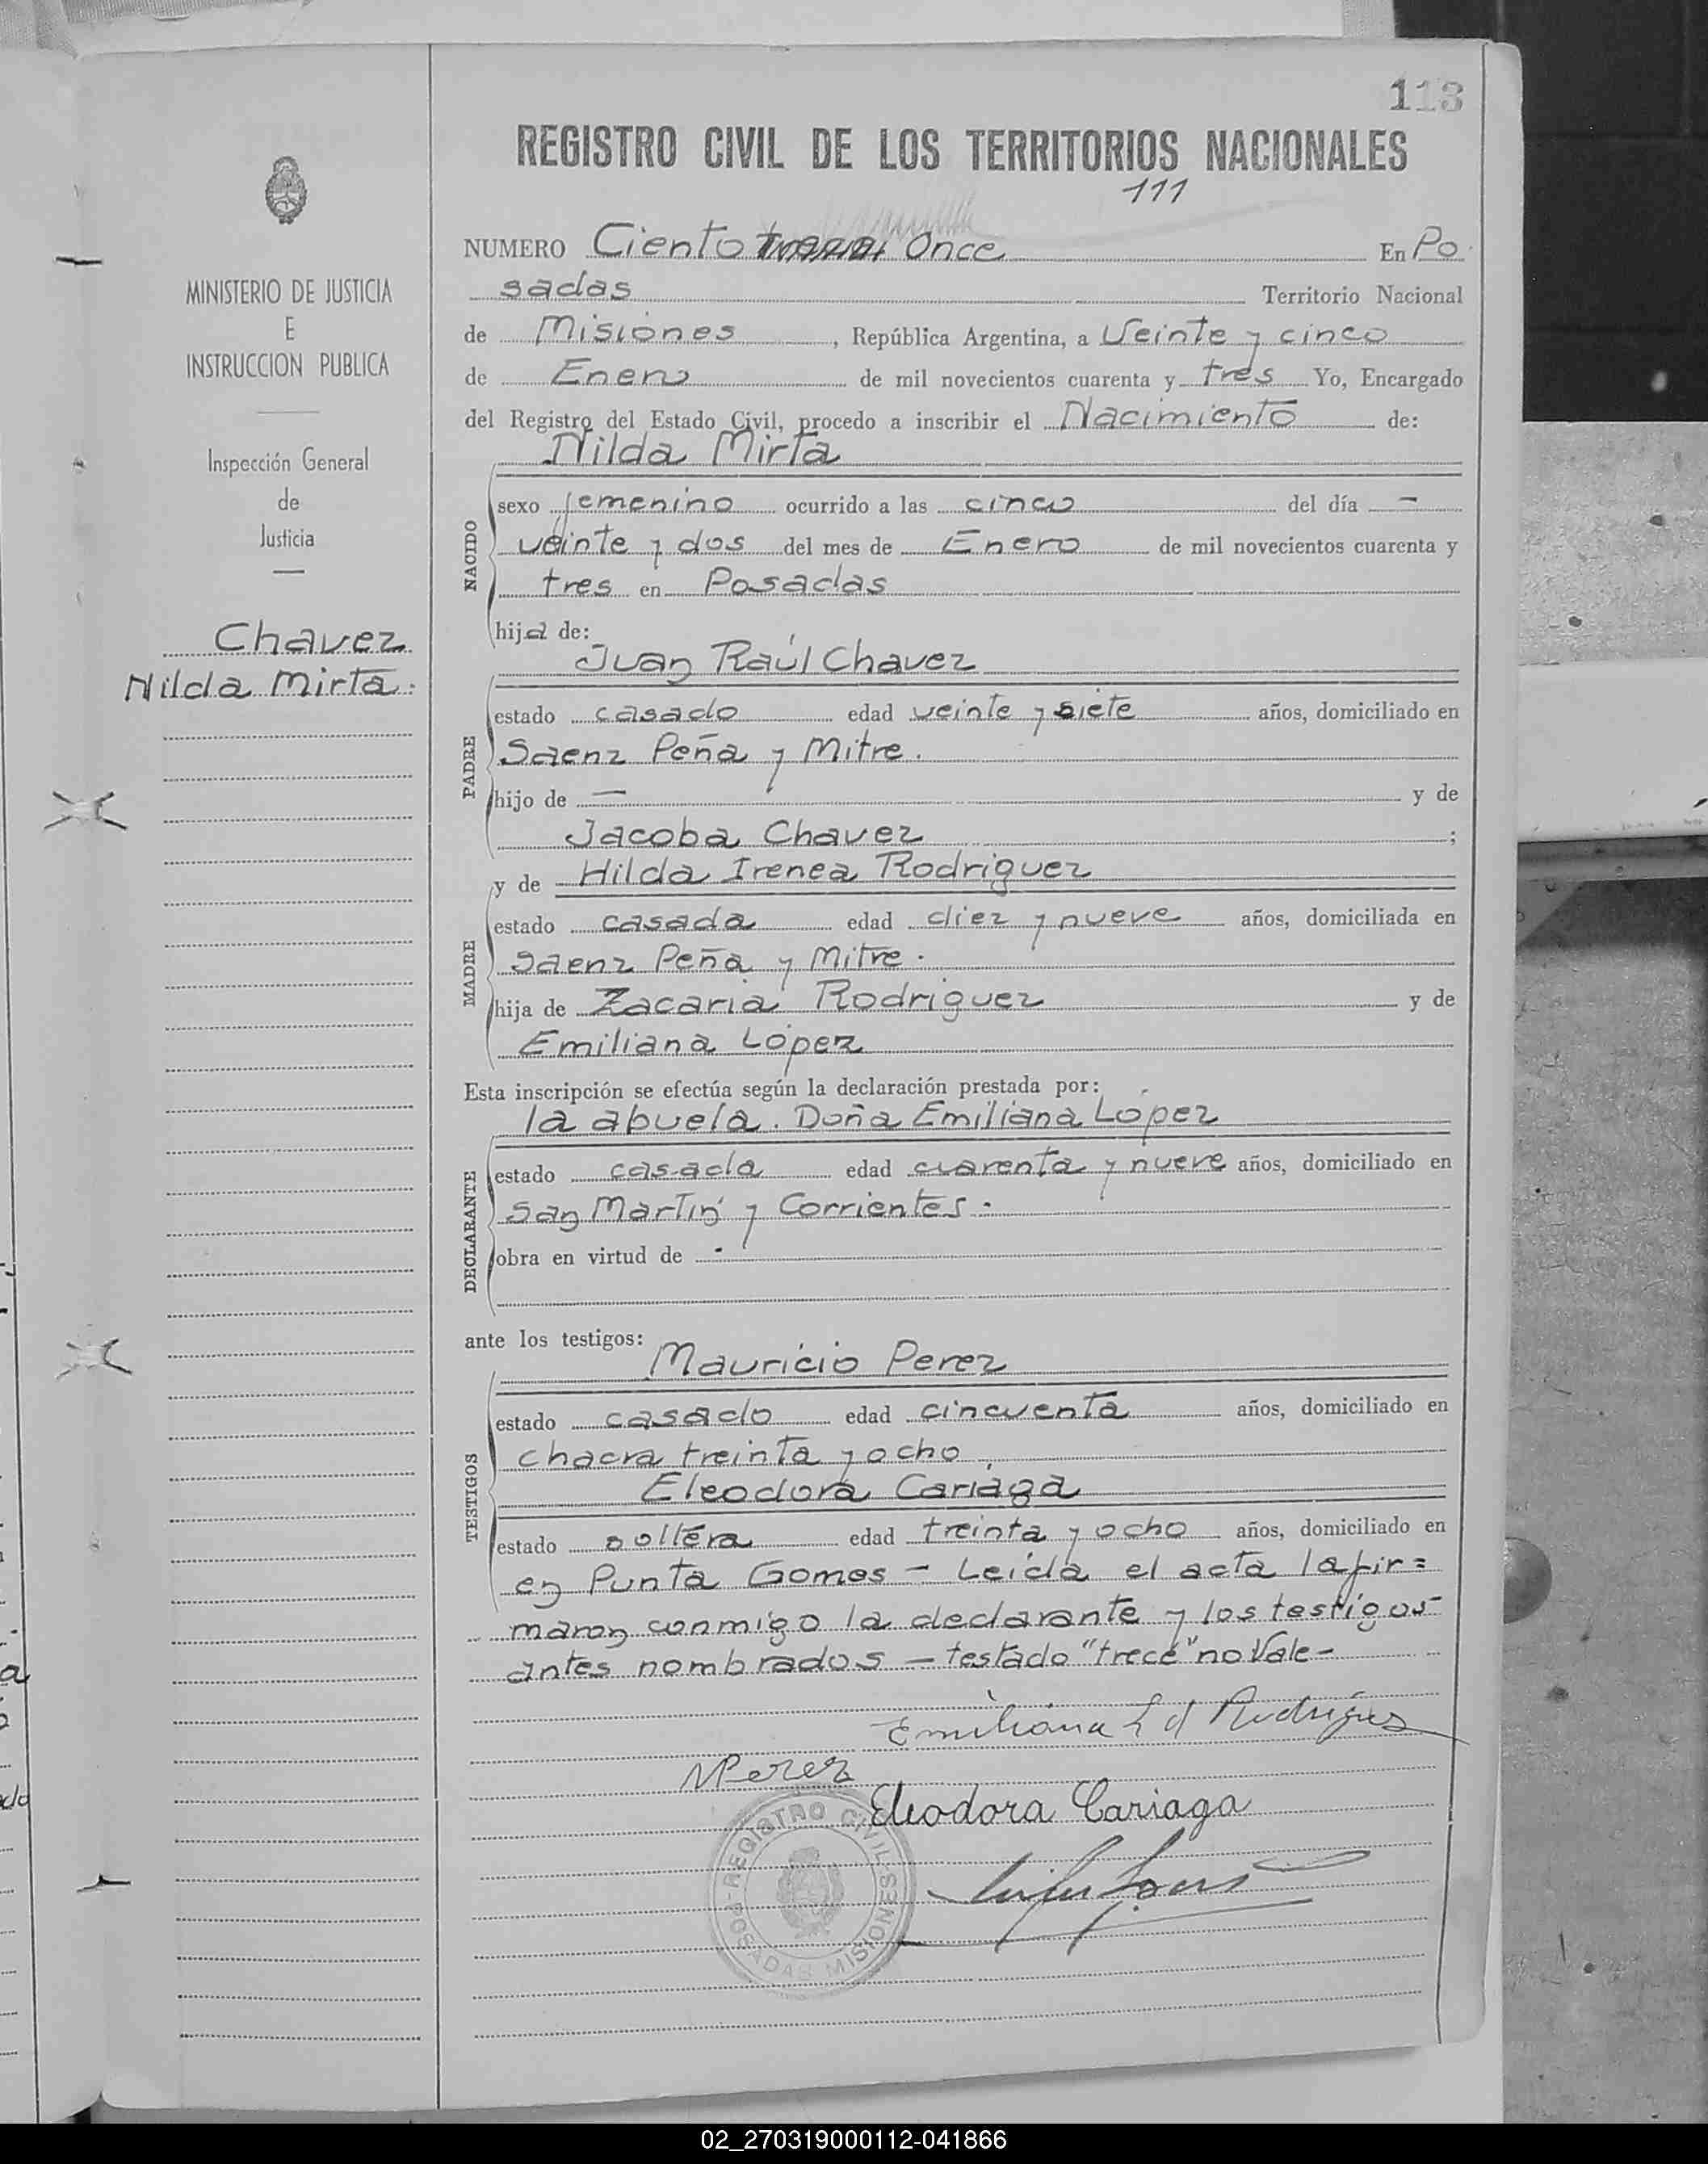 113
REGISTRO CIVIL DE LOS TERRITORIOS NACIONALES
111
MINISTERIO DE JUSTICIA
E
INSTRUCCION PUBLICA
Inspección General
de
Justicia
Chavez
Nilda Mirta.
NUMERO Ciento trece Once En Po
sadas Territorio Nacional
de Misiones, República Argentina, a Veinte y cinco
de Enero de mil novecientos cuarenta y tres Yo, Encargado
del Registro del Estado Civil, procedo a inscribir el Nacimiento de:
Nilda Mirta
NACIDO
sexo femenino ocurrido a las cinco del día —
veinte y dos del mes de Enero de mil novecientos cuarenta y
tres en Posadas
hija de:
Juan Raúl Chavez
PADRE
estado casado edad veinte y siete años, domiciliado en
Saenz Peña y Mitre.
hijo de — y de
Jacoba Chavez ;
y de Hilda Irenea Rodriguez
MADRE
estado casada edad diez y nueve años, domiciliada en
Saenz Peña y Mitre.
hija de Zacaria Rodriguez y de
Emiliana López
Esta inscripción se efectúa según la declaración prestada por:
la abuela. Doña Emiliana López
DECLARANTE
estado casada edad cuarenta y nueve años, domiciliado en
San Martín y Corrientes.
obra en virtud de -
ante los testigos:
Mauricio Perez
TESTIGOS
estado casado edad cincuenta años, domiciliado en
chacra treinta y ocho.
Eleodora Cariaga
estado soltera edad treinta y ocho años, domiciliado en
en Punta Gomes - Leida el acta la fir=
maron conmigo la declarante y los testigos
antes nombrados - testado "trece" no Vale -
Emiliana L d Rodrigues
MPerez
Eleodora Cariaga
REGISTRO CIVIL
POSADAS MISIONES
02_270319000112-041866